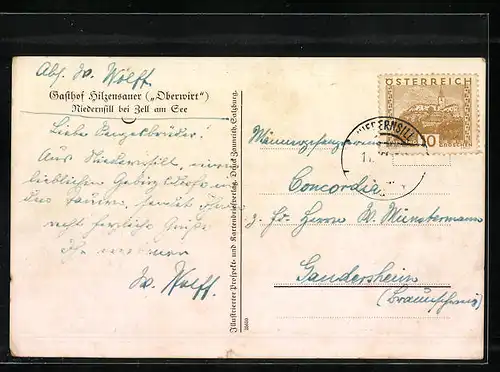 Abs. Fr. Wolff
Gasthof Hilzensauer („Oberwirt“)
Niedernsill bei Zell am See
Liebe Sangesbrüder!
Aus Niedernsill, einem
lieblichen Gebirgsdorfe in
den Tauern, sendet Ihnen
recht herzliche Grüße
Ihr
Fr. Wolff.
Illustrierter Prospekt- und Kartenbriefverlag, Druck Zaunrith, Salzburg.
ÖSTERREICH
NIEDERNSILL
Männergesangverein
Concordia
z. Hd. Herrn W. Münstermann
Gandersheim
(Braunschweig)